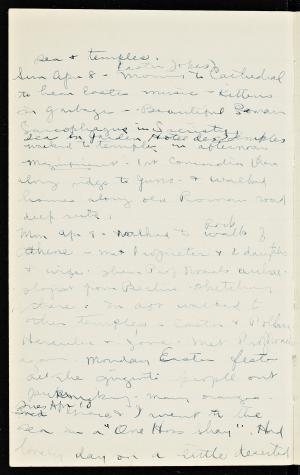 sea & temples.
(Easter Jokes)
Sun Apr 8 - Morning to Cathedral
to hear Easter music - Kittens
in garbage - Beautiful Roman
Sarcophagus in Sacristy
Sea in garden, Hotel des Temples
walked to temples in afternoon
Magnificent - 1st Concordia then
along ridge to Juno - & walked
home along old Roman road
deep ruts.
Mon Apr 9 - walked to Rock
walls of
Athene - met Proprietor & 2 daughters
& wife. Also Prof
ologist from Berlin sketching
there. In aft walked to
other temples - Castor & Pollux
Hercules & Jove - Met Professor
again Monday Easter festa
all the Girgenti people out
picnicking, many oranges.
Tues Apr 10
and I went to the
sea in a "One Hoss shay". Had
lovely day on a little deserted